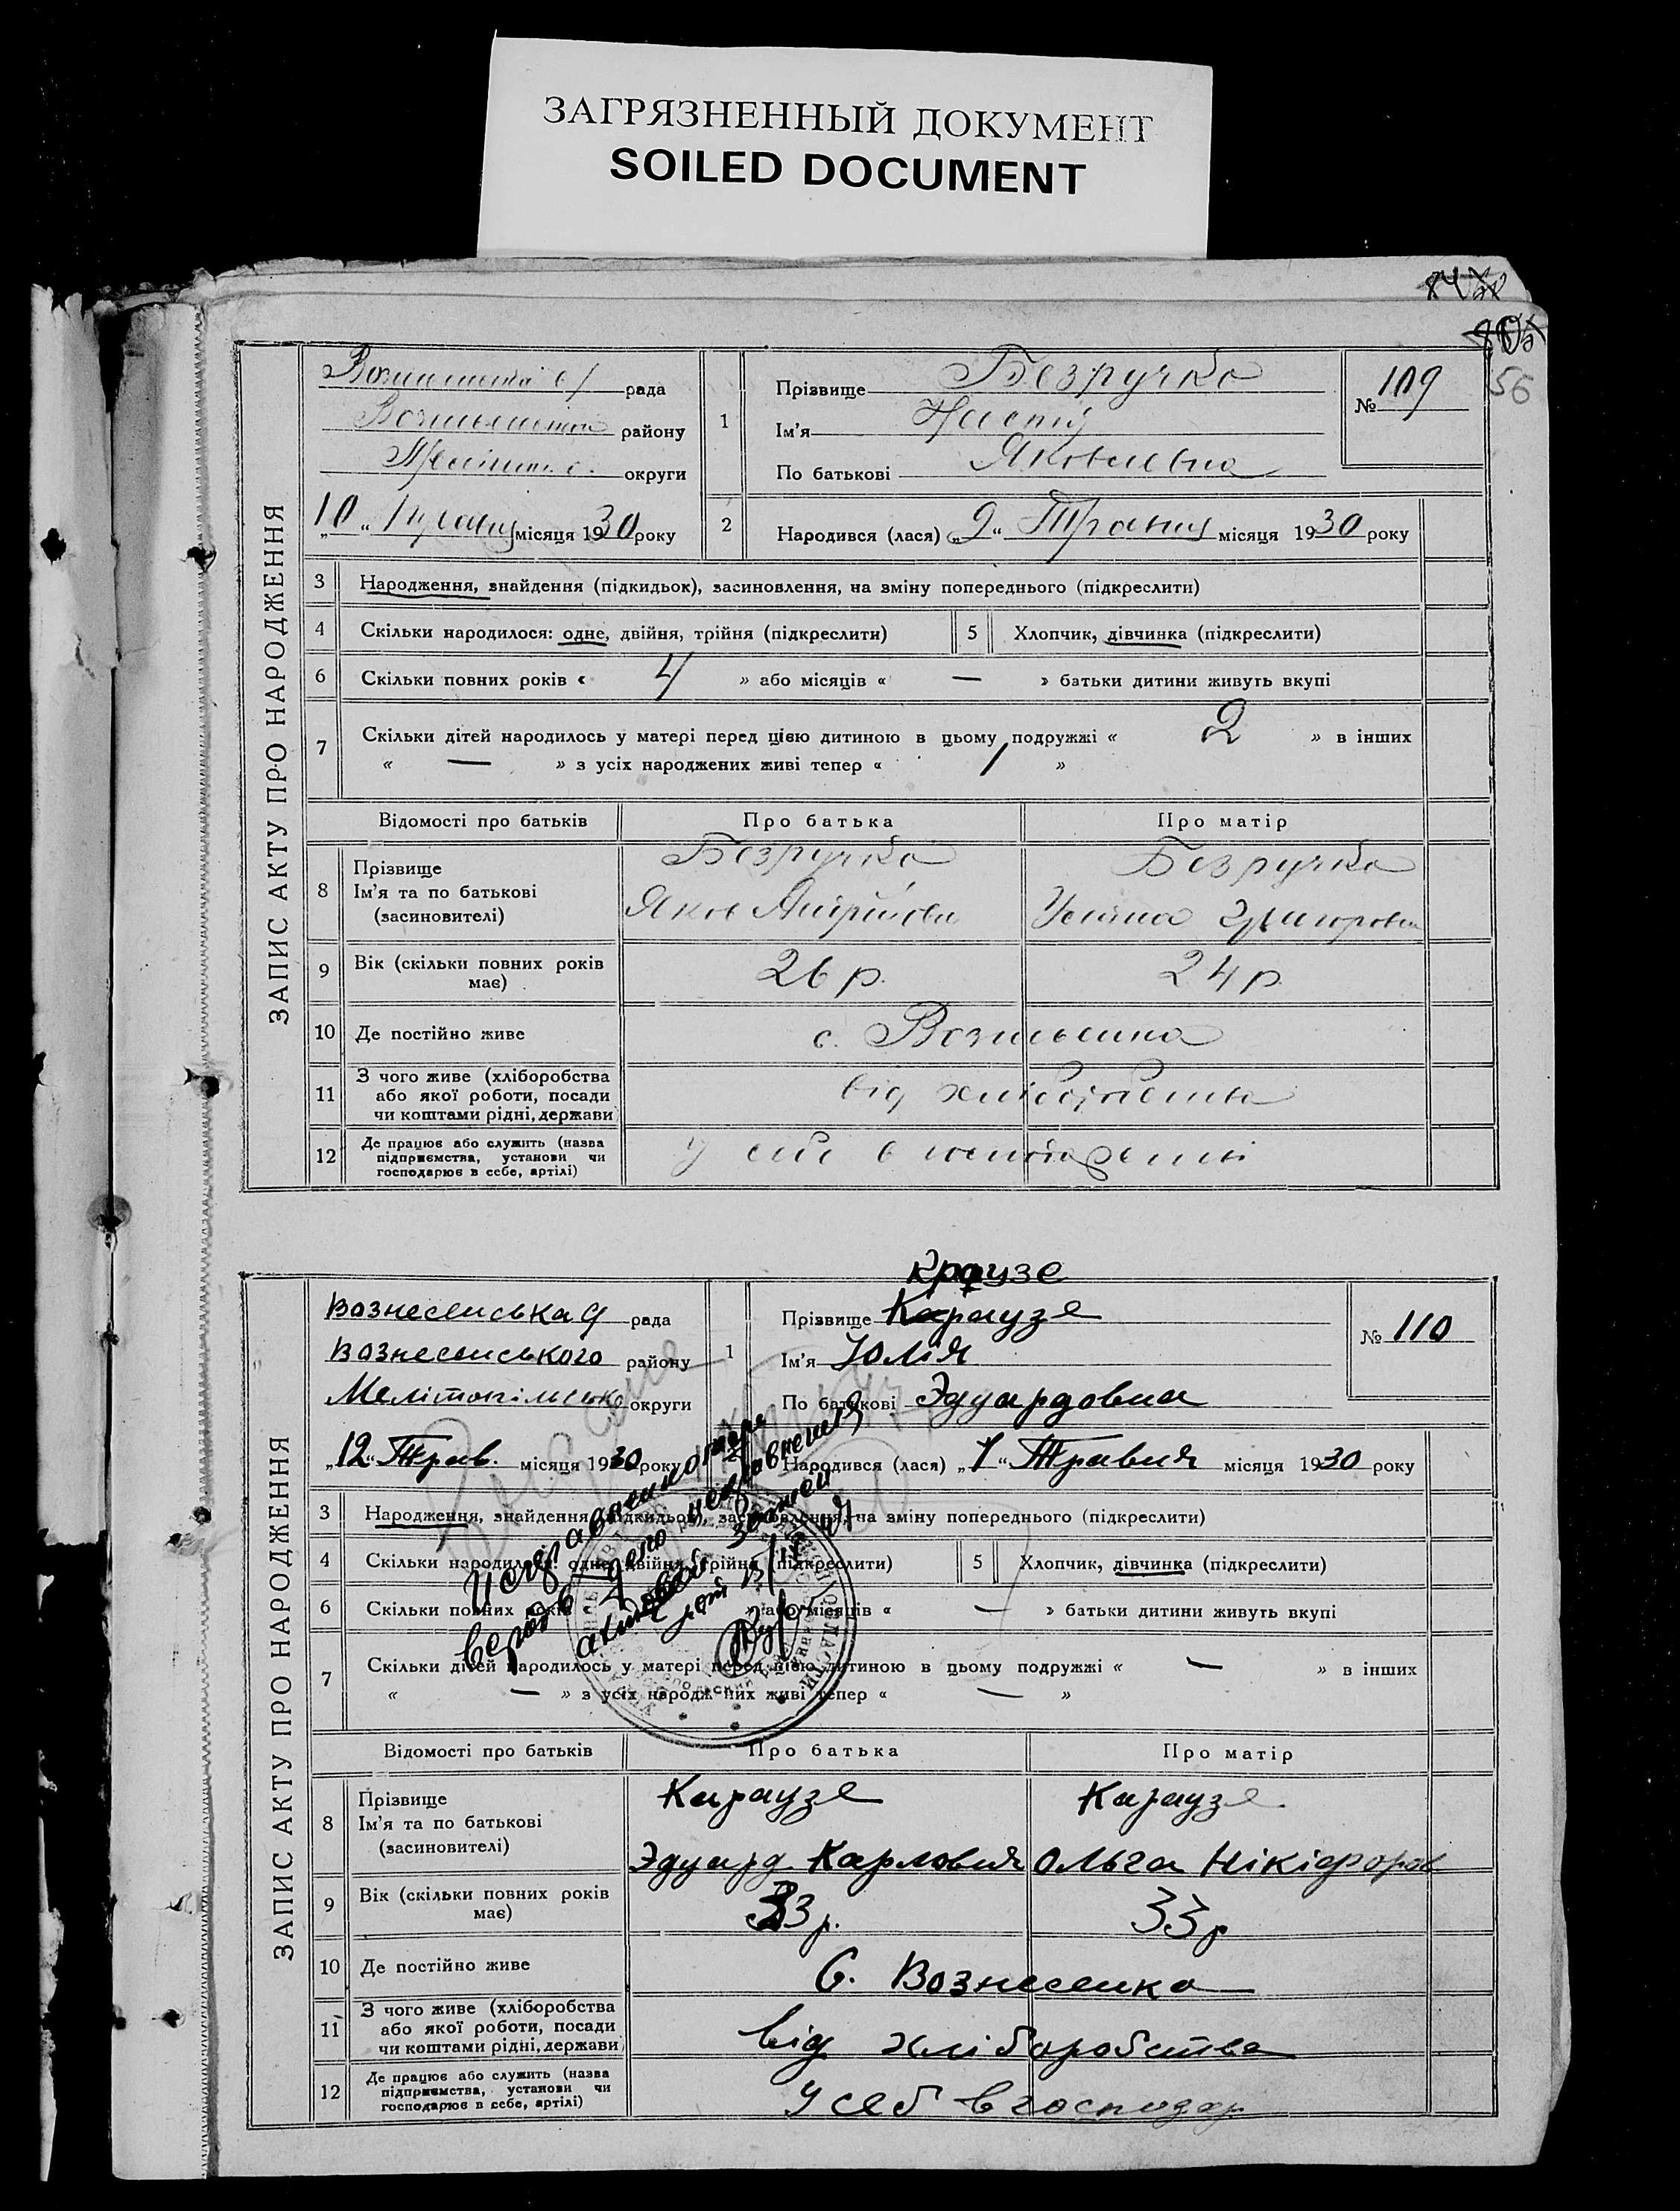 ЗАГРЯЗНЕННЫЙ ДОКУМЕНТ
SOILED DOCUMENT
56
ЗАПИС АКТУ ПРО НАРОДЖЕННЯ
рада
району
округи
„10“ Травня місяця 1930 року
№ 109
1
Прізвище Безручко
Ім'я Настя
По батькові Яковлевна
2
Народився (лася) „2“ Травня місяця 1930 року
3 Народження, знайдення (підкидьок), засиновлення, на зміну попереднього (підкреслити)
4 Скільки народилося: одне, двійня, трійня (підкреслити) 5 Хлопчик, дівчинка (підкреслити)
6 Скільки повних років « 4 » або місяців « — » батьки дитини живуть вкупі
7 Скільки дітей народилось у матері перед цією дитиною в цьому подружжі « 2 » в інших
« — » з усіх народжених живі тепер « 1 »
Відомості про батьків Про батька Про матір
8 Прізвище Безручко Безручко
Ім'я та по батькові Яков
(засиновителі)
9 Вік (скільки повних років має) 26 р. 24 р.
10 Де постійно живе с.
11 З чого живе (хліборобства
або якої роботи, посади
чи коштами рідні, держави від хліборобства
12 Де працює або служить (назва
підприємства, установи чи
господарює в себе, артілі) у себе в
ЗАПИС АКТУ ПРО НАРОДЖЕННЯ
Краузе
Вознесенська рада
Вознесенського району
округи
„12“ Трав. місяця 1930 року
№ 110
1
Прізвище Караузе
Ім'я Юлія
По батькові Эдуардовна
Народився (лася) „1“ Травня місяця 1930 року
3 Народження, знайдення (підкидьок), засиновлення, на зміну попереднього (підкреслити)
4 Скільки народилося: одне, двійня, трійня (підкреслити) 5 Хлопчик, дівчинка (підкреслити)
6 Скільки повних років « » або місяців « — » батьки дитини живуть вкупі
7 Скільки дітей народилось у матері перед цією дитиною в цьому подружжі « — » в інших
« — » з усіх народжених живі тепер « — »
Відомості про батьків Про батька Про матір
8 Прізвище Караузе Караузе
Ім'я та по батькові Эдуард Карловия Ольга Нікіфоров
(засиновителі)
9 Вік (скільки повних років має) 33 р. 33 р
10 Де постійно живе С. Вознесенка
11 З чого живе (хліборобства
або якої роботи, посади
чи коштами рідні, держави від хліборобства
12 Де працює або служить (назва
підприємства, установи чи
господарює в себе, артілі) У себ в господар